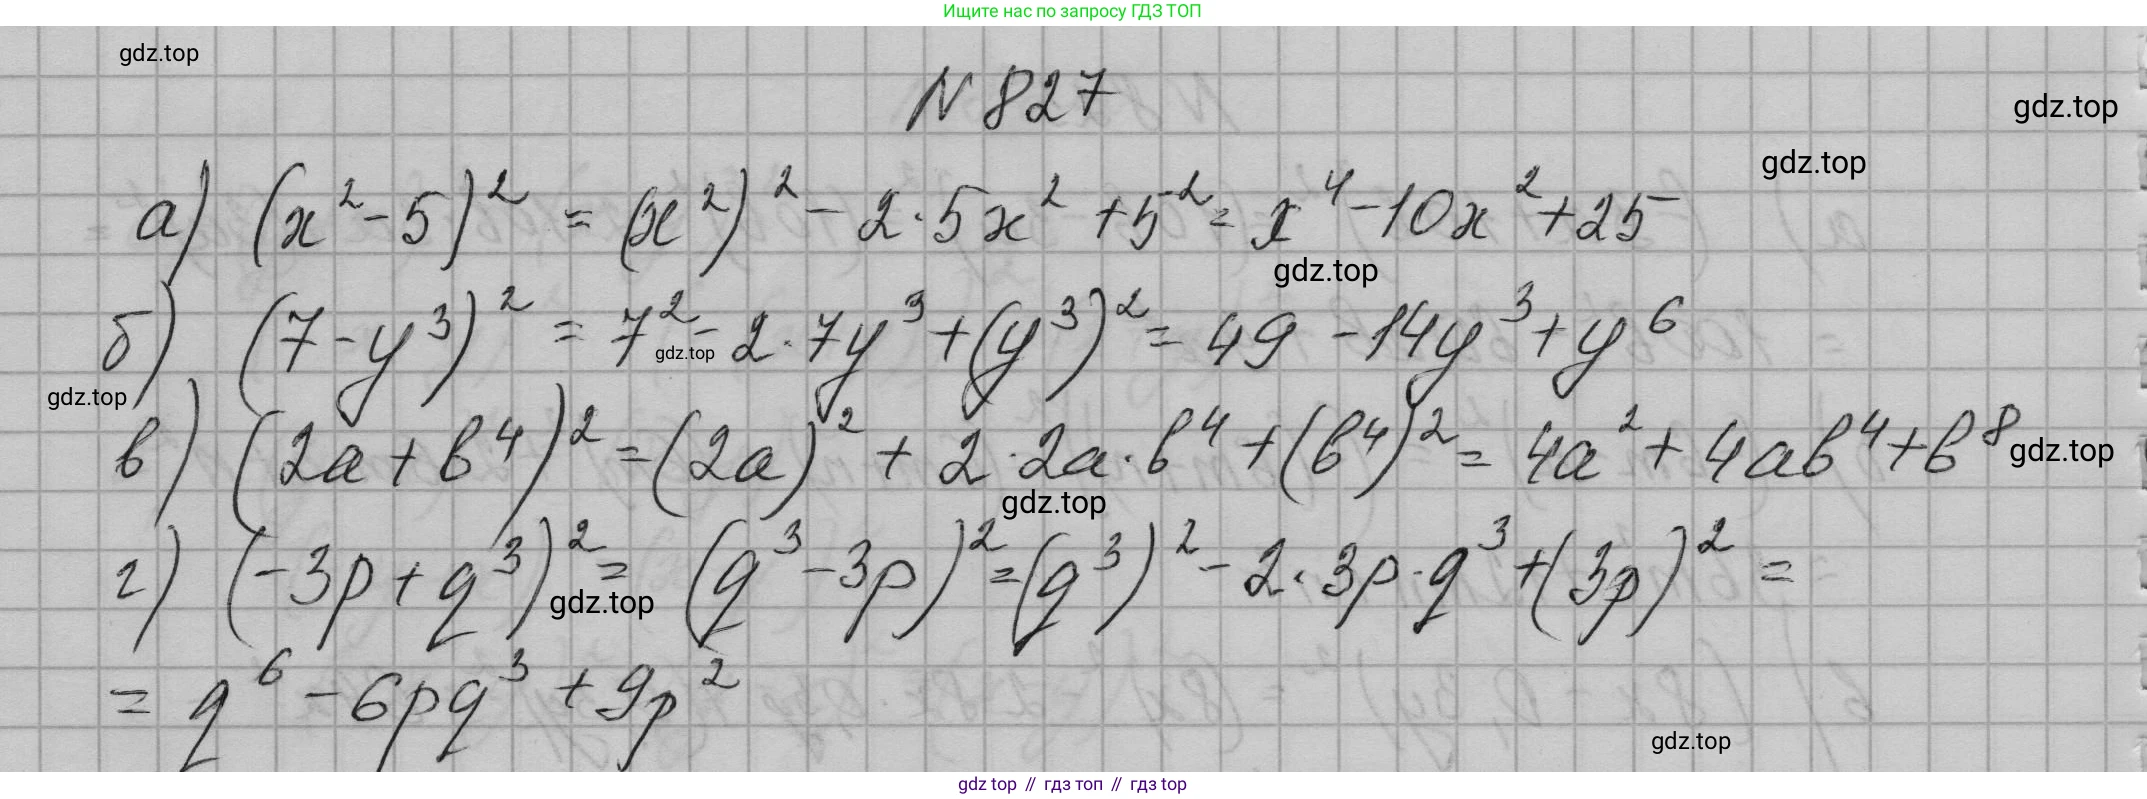 Ищите нас по запросу ГДЗ ТОП
gdz.top
N 827
gdz.top
gdz.top
а) (x² - 5)² = (x²)² - 2·5x² + 5² = x⁴ - 10x² + 25
gdz.top
б) (7 - y³)² = 7² - 2·7y³ + (y³)² = 49 - 14y³ + y⁶
gdz.top
gdz.top
в) (2a + b⁴)² = (2a)² + 2·2a·b⁴ + (b⁴)² = 4a² + 4ab⁴ + b⁸
gdz.top
gdz.top
г) (-3p + q³)² = (q³ - 3p)² = (q³)² - 2·3p·q³ + (3p)² =
gdz.top
= q⁶ - 6pq³ + 9p²
gdz.top
gdz top // гдз топ // гдз top